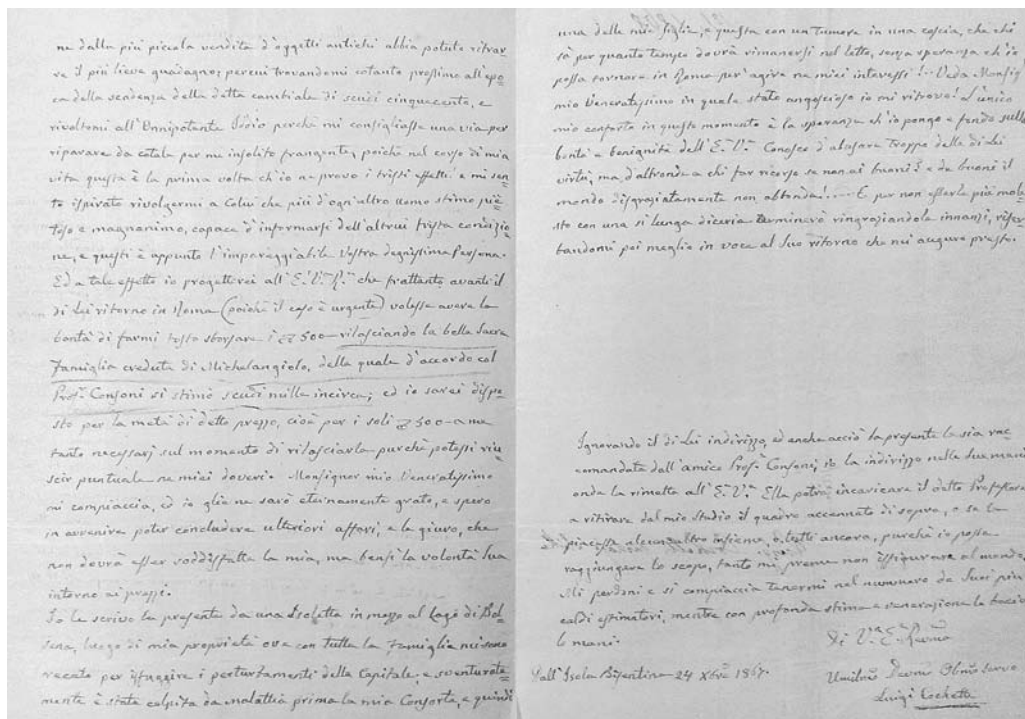 ne dalla più piccola vendita d'oggetti antichi abbia potuto ritrar-
re il più lieve guadagno; percui trovandomi cotanto prossimo all'epo-
ca della scadenza della detta cambiale di scudi cinquecento, e
rivoltomi all'Onnipotente Iddio perché mi consigliasse una via per
riparare da cotale per me insolito frangente, poiché nel corso di mia
vita questa è la prima volta ch'io ne provo i tristi effetti e mi sen-
to ispirato rivolgermi a Colui che più d'ogni altro uomo stimo pie-
toso e magnanimo, capace d'informarsi dell'altrui trista condizio-
ne, e questi è appunto l'impareggiabile Vostra degnissima Persona.
Ed a tale effetto io progetterei all'E. V. R. che frattanto avanti il
di Lei ritorno in Roma (poiché il caso è urgente) volesse avere la
bontà di farmi tosto sborsare i 500 rilasciando la bella Sacra
Famiglia creduta di Michelangiolo, della quale d'accordo col
Prof. Consoni si stimò scudi mille incirca; ed io sarei dispo-
sto per la metà di detto prezzo, cioè per i soli 500 a me
tanto necessarj sul momento di rilasciarla purché potessi riu-
scir puntuale ne miei doveri. Monsignor mio Veneratissimo
mi compiaccia, ed io gliene sarò eternamente grato, e spero
in avvenire poter concludere ulteriori affari, e le giuro, che
non dovrà esser soddisfatta la mia, ma bensì la volontà Sua
intorno ai prezzi.
Io le scrivo la presente da una Isoletta in mezzo al Lago di Bol-
sena, luogo di mia proprietà ove con tutta la Famiglia mi sono
recato per isfuggire i perturbamenti della Capitale, e sventurata-
mente è stata colpita da malattia prima la mia Consorte, e quindi
una delle mie figlie, e questa con un tumore in una coscia, che chi
sà per quanto tempo dovrà rimanersi nel letto, senza speranza ch'io
possa tornare in Roma per agire ne miei interessi!... Veda Monsig.
mio Veneratissimo in quale stato angoscioso io mi ritrovo! L'unico
mio conforto in questo momento è la speranza ch'io pongo e fondo sulla
bontà e benignità dell'E. V. Conosco d'abusare troppo delle di Lei
virtù, ma d'altronde a chi far ricorso se non ai buoni? e de buoni il
mondo disgraziatamente non abbonda!.... E per non esserle più mole-
sto con una sì lunga diceria terminerò ringraziandola innanzi, riser-
bandomi poi meglio in voce al Suo ritorno che mi auguro presto.
Ignorando il di Lei indirizzo, ed anche acciò la presente le sia rac-
comandata dall'amico Prof. Consoni, io la indirizzo nelle Sue mani
onde la rimetta all'E. V. Ella potrà incaricare il detto Professore
a ritirare dal mio Studio il quadro accennato di sopra, o se le
piacesse alcun altro insieme, o tutti ancora, purché io possa
raggiungere lo scopo, tanto mi preme non isfigurare al mondo.
Mi perdoni e si compiaccia tenermi nel nummero de Suoi più
caldi estimatori, mentre con profonda stima e venerazione le bacio
le mani.
Di V. E. Revma
Dall'Isola Bisentina 24 Xbre 1867.
Umilmo Devmo Obmo Servo
Luigi Cochetti